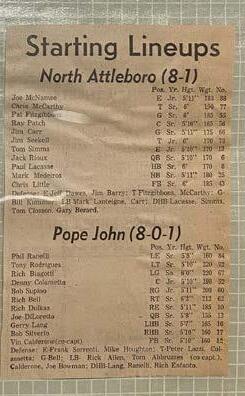 Starting Lineups
North Attleboro (8-1)
Pos. Yr. Hgt. Wgt. No.
Joe McNamee E Jr. 5'11" 183 88
Chris McCarthy T Sr. 6' 190 77
Pat Fitzgibbons G Sr. 6' 185 55
Ray Patch C Sr. 5'10" 165 56
Jim Carr G Sr. 5'11" 175 66
Jim Seekell T Jr. 6' 170 73
Tom Simms E Jr. 5'10" 170 12
Jack Rioux QB Sr. 5'10" 170 6
Paul Lacasse HB Sr. 6' 170 8
Mark Medeiros HB Sr. 5'11" 180 25
Chris Little FB Sr. 6' 185 43
Defense: E-Jeff Dawes, Jim Barry; T-Fitzgibbons, McCarthy; G-
Bill Kummer; LB-Mark Lanteigne, Carr; DHB-Lacasse, Simms,
Tom Closson, Gary Berard.
Pope John (8-0-1)
Pos. Yr. Hgt. Wgt. No.
Phil Ranelli LE Sr. 5'8" 160 84
Tony Rodrigues LT Sr. 5'10" 220
Rich Biagotti LG 5'7" 220 67
Denny Colametta C Sr. 5'10" 190
Rob Supino RG Jr. 5'11" 200 60
Rich Bell RT Sr. 6'2" 212 62
Rich Dulkas RE Sr. 5'11" 185
Joe DiLoreto QB Sr. 5'8" 155 12
Gerry Lang RHB Sr. 5'7" 165 10
Bob Silverio LHB Sr. 5'9" 165
Vin Calderone(co-capt) FB Sr. 5'10" 160 12
Defense: E-Frank Sorrenti, Mike Houghton; T-Peter Lazzi, Col-
azzetta; G-Bell; LB- Rick Allen, Tom Abbruzzes (co-capt.),
Calderone, Joe Bowman; DHB-Lang, Ranelli, Rich Enfanto.